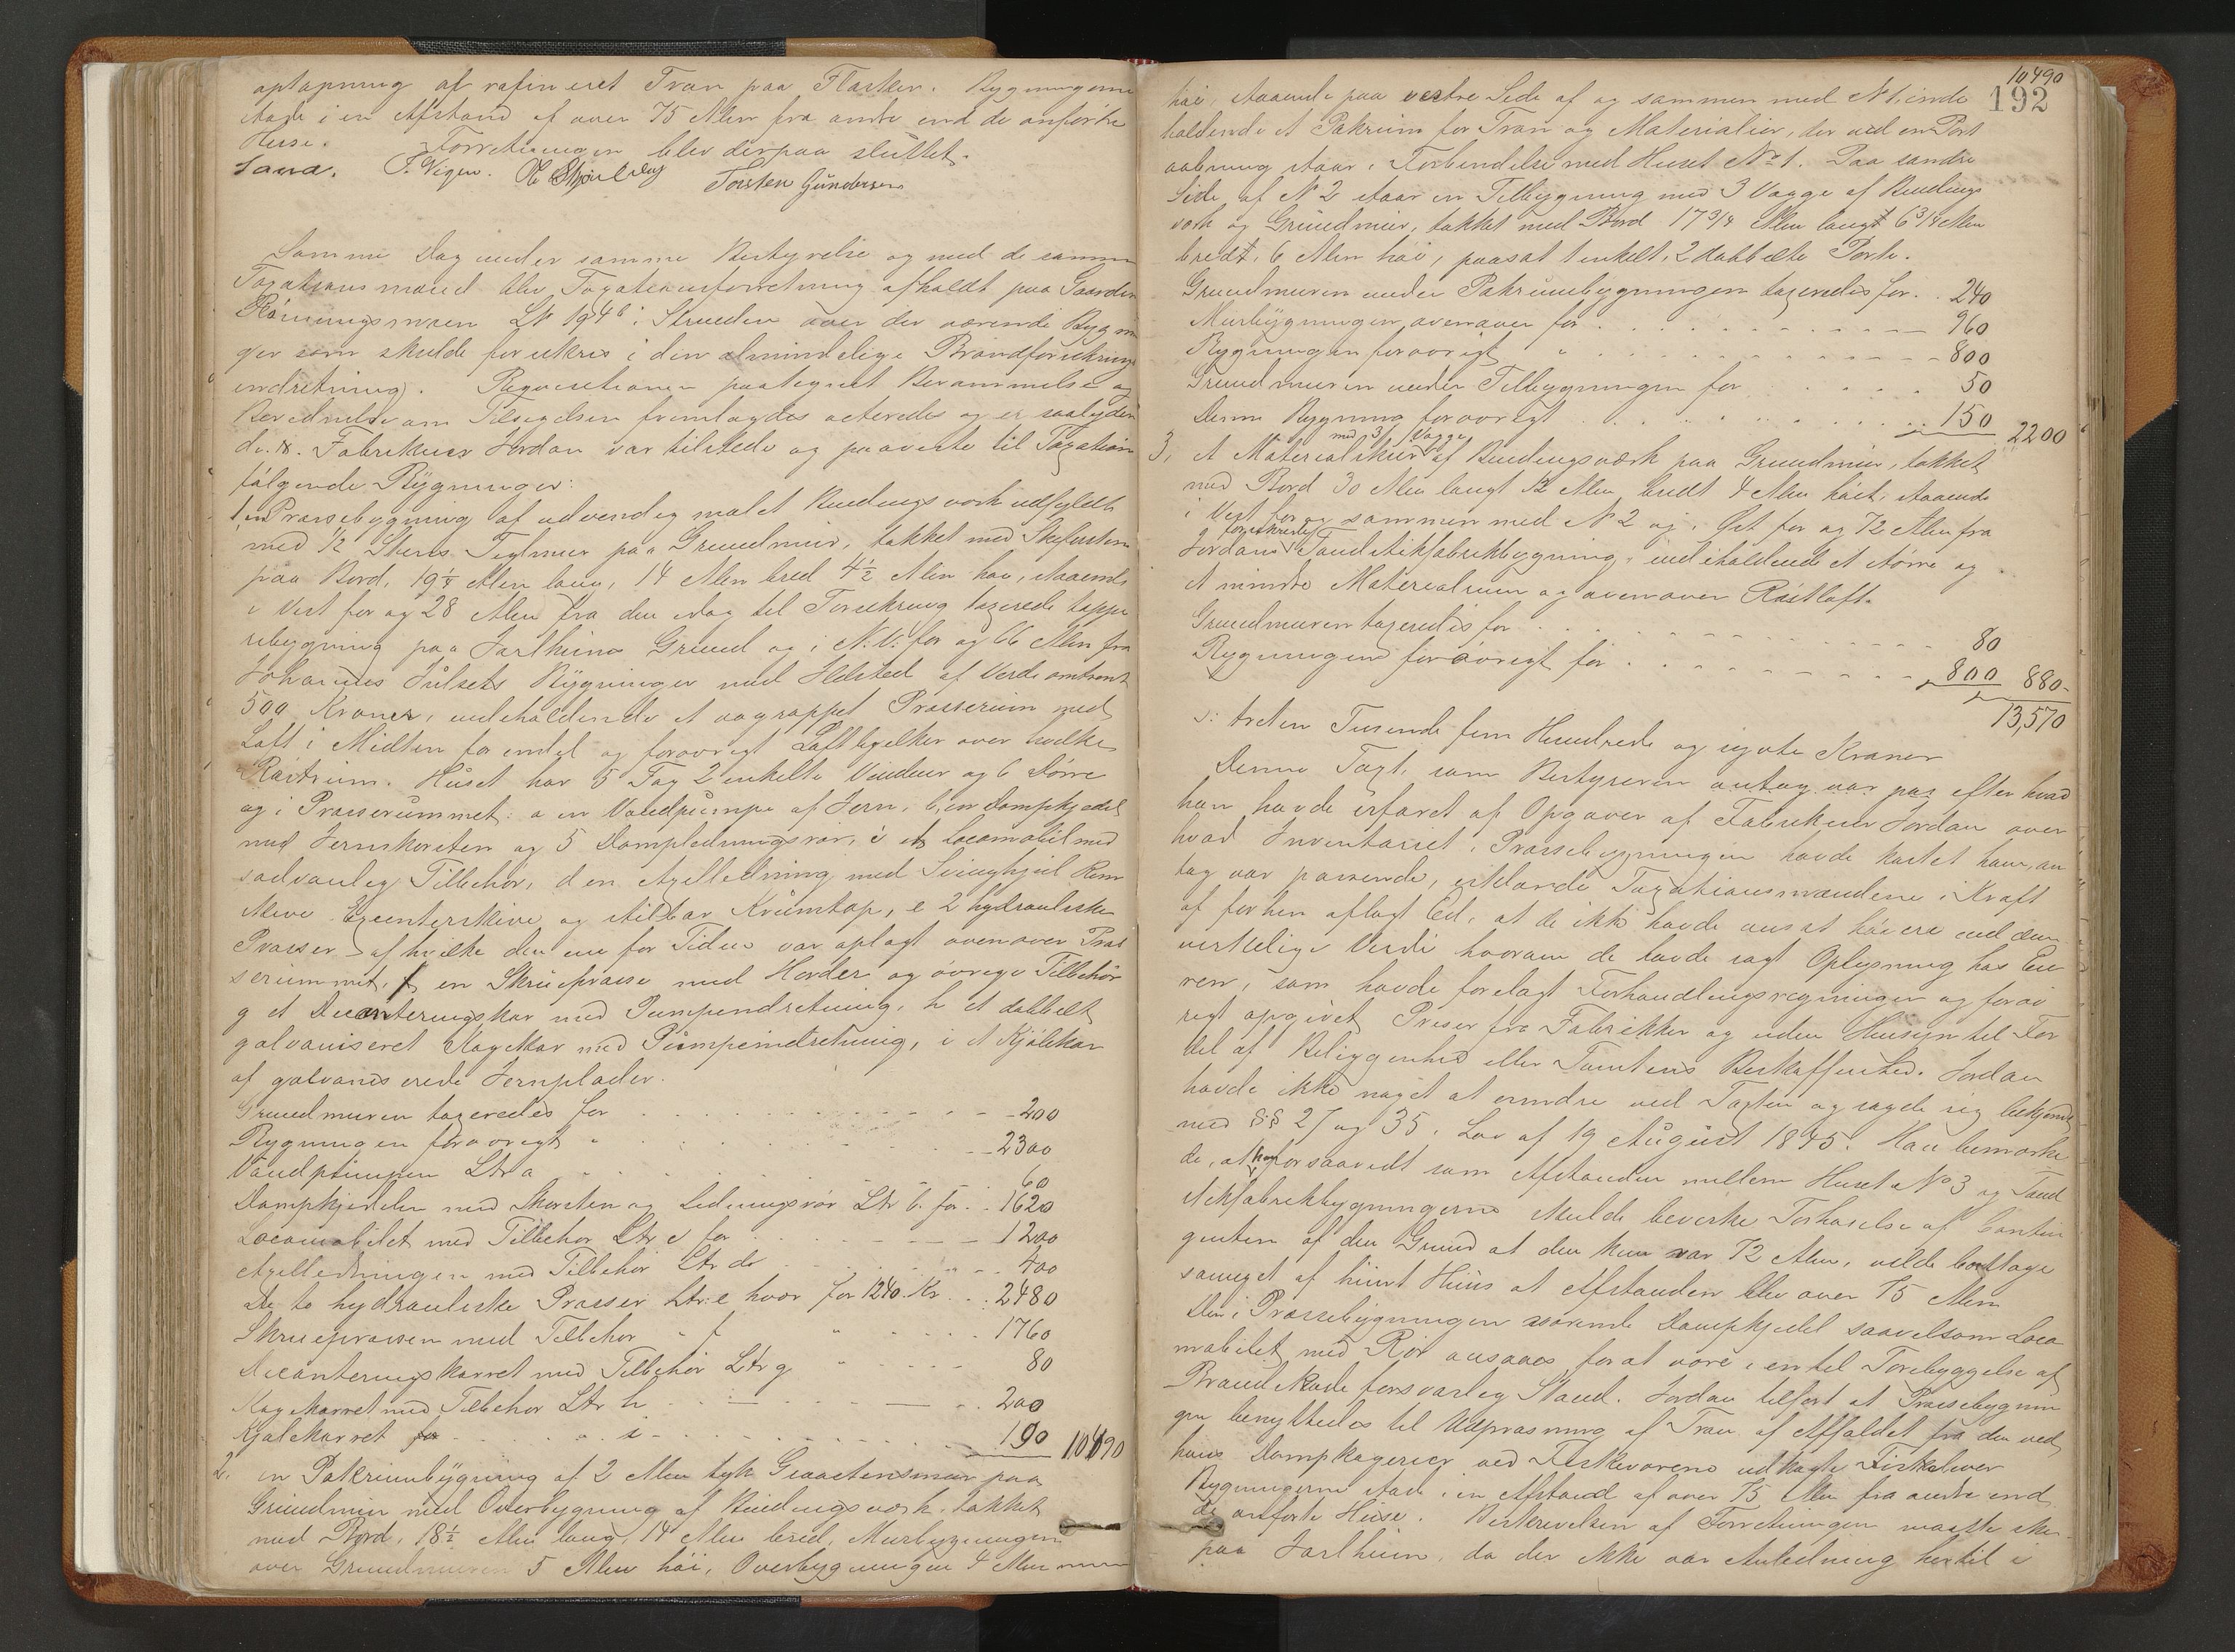 optapning af rafineret Tran paa Flasker. Bygningerne
stade i en Afstand af over 75 Alen fra andre end de anførte
Huse. Forretningen blev derpaa sluttet.
Sand. F. Vigen. Torsten Gundersen
Samme Dag under samme Bestyrelse og med de samme
Taxationsmænd blev Taxationsforretning afholdt paa Gaarden
LN 194 b i Strinden over der værende Bygnin
ger som skulde forsikres i den almindelige Brandforsikrings
indretning. Reqvisitionen paategnet Berammelse og
Beviidnelse om Tilsigelsen fremlagdes acteredes og er saalyden
de. Fabrikeier Jordan var tilstede og paaviste til Taxation
følgende Bygninger:
1, en Prassebygning af udvendig malet Bindingsværk udfyldt
med 1/2 Stens Teglmur paa Grundmur, takket med Skifersten
paa Bord, 19 1/4 Alen lang, 14 Alen bred 4 1/2 Alen høi, staaende
i Vest for og 28 Alen fra den idag til Forsikring taxerede tappe
ribygning paa Jarlheims Grund og i N.V. for og 66 Alen fra
Johannes Hulsets Bygninger med Ildsted af Verdi omtrent
500 Kroner, indeholdende et uograppet Prasserum med
Loft i Midten for endel og forøvrigt Loftbjelker over hvilke
Røstrum. Huset har 5 Fag 2 enkelte Vinduer og 6 Dørre
og i Prasserummet: a en Vandpumpe af Jern, b, en Dampkjedel
med Jernskorsten og 5 Dampledningsrør, c et Locomobil med
sadvanlig Tilbehør, d en Axelledning med Svinghjul Rem
skive Excenterskive og stilbar Krumtap, e 2 hydrauliske
Prasser af hvilke den ene for Tiden var oplagt ovenover Pras
serummet, f, en Skruepraese med Horder og øvrige Tilbehør
g et Decanteringskar med Pumpeindretning, h et dobbelt
galvaniseret Kogekar med Pumpeindretning, i et Kjølekar
af galvaniserede Jernplader.
Grundmuren taxeredes for 200
Bygningen forøvrigt " 2300
Vandpumpen Ltr a 60
Dampkjedelen med Skorsten og Ledningsrør Ltr b. for 1620
Locomobilet med Tilbehør Ltr c for 1200
Axelledningen med Tilbehør Ltr d 400
De to hydrauliske Prasser Ltr: e hver for 1240 Kr 2480
Skrueprassen med Tilbehør " f " 1760
Decanteringskarret med Tilbehør Ltr g " 80
Kogekarret med Tilbehør Ltr h 200
Kjølekarret i 190 10490
2. en Pakrumbygning af 2 Alen tyk Graastensmur paa
Grundmur med Overbygning af Bindingsværk takket
med Bord, 18 1/2 Alen lang, 14 Alen bred, Murbygningen
over Grundmuren 5 Alen høi, Overbygningen 4 Alen
10490
192
høi, staaende paa vestre Side af og sammen med N 1, inde
holdende et Pakrum for Tran og Materialier, der ved en Port
aabning staar i Forbindelse med Huset No 1. Paa søndre
Side af N 2 staar en Tilbygning med 3 Vagge af Bindings
værk og Grundmur, takket med Bord 17 3/4 Alen langt 6 3/4 Alen
bredt, 6 Alen høi, paasat 1 enkelt, 2 dobbelte Porte.
Grundmuren under Pakrumbygningen taxeredes for 240
Murbygningen ovenover for 960
Bygningen forøvrigt " 800
Grundmuren under Tilbygningen for 50
Denne Bygning forøvrigt 150 2200
3, et Materialskur med 3 Vagge af Bindingsværk paa Grundmur, takket
med Bord 30 Alen langt 12 Alen bredt 4 Alen høit, staaende
i Vest for og sammen med N 2 og i Øst for og 72 Alen fra
Jordans forsikrede Tandstikfabrikbygning, indeholdende et større og
et mindre Materialrum og ovenover Røstloft.
Grundmuren taxeredes for 80
Bygningen forøvrigt for 800 880
13,570
Tretten Tusinde fem Hundrede og sytti Kroner
Denne Taxt, som Bestyreren antog var paa efter hvad
han havde erfaret af Opgaver af Fabrikeier Jordan over
hvad Inventariet i Prassebygningen havde kostet ham, an
tog var passende, erklærede Taxationsmændene i Kraft
af forhen aflagt Ed, at de ikke havde ansat høiere end den
virkelige Verdi hvorom de havde søgt Oplysning hos Eie
ren, som havde forelagt Forhandlingsregninger og forøv
rigt opgivet Priser fra Fabrikker og uden Hensyn til For
del af Beliggenhed eller Tomtens Beskaffenhed. Jordan
havde ikke noget at erindre ved Taxten og sagde sig bekjendt
med §§ 27 og 35 i Lov af 19 August 1845. Han bemærke
de, at han forsaavidt som Afstanden mellem Huset No 3 og Tand
stikfabrikbygningerne skulde bevirke Forhøielse af Contin
genten af den Grund at den kun var 72 Alen, vilde borttage
saameget af hiint Huus at Afstanden blev over 75 Alen
Den i Prassebygningen værende Dampkjedel saavelsom Loco
mobilet med Rør ansaaes for at være i en til Forebyggelse af
Brandskade forsvarlig Stand. Jordan tilføiet at Prassebygnin
gen benyttedes til Udprasning af Tran af Affaldet fra den ved
hans Dampkogerier ved Fiskeværene udkogte Fiskelever
Bygningerne stod i en Afstand af over 75 Alen fra andre end
de anførte Huse. Beskrivelsen af Forretningen maatte ske
paa Jarlheim, da der ikke var Anledning hertil i